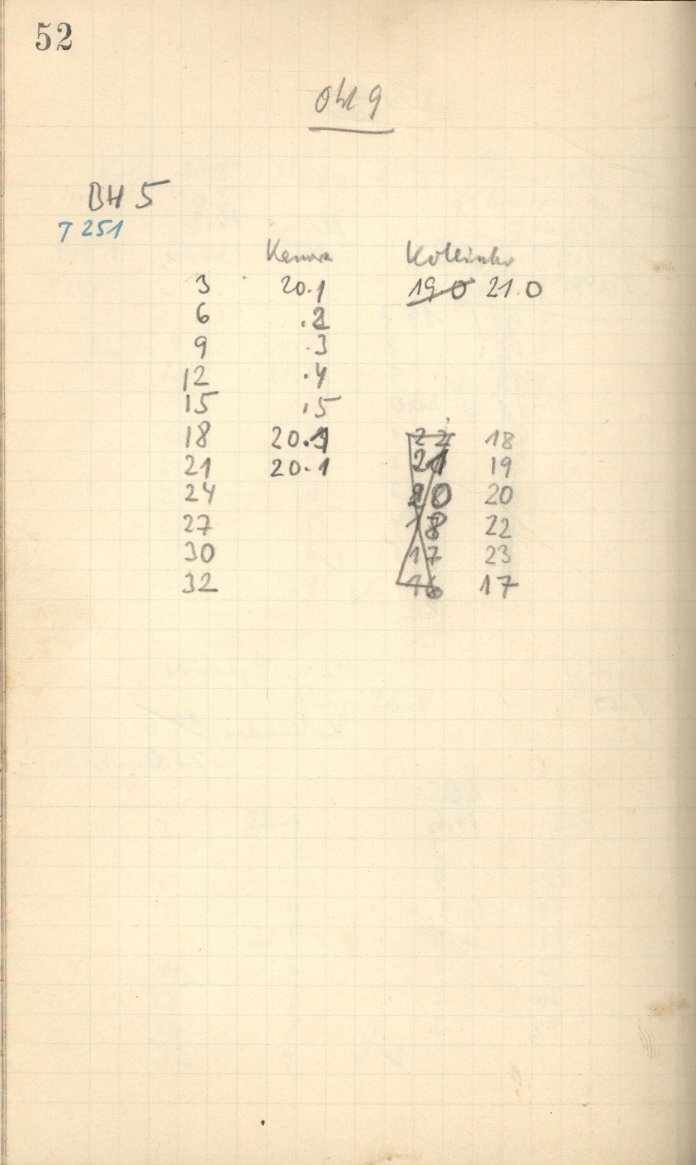 52
BH 5
T 251
3 20.1 19 0 21.0
6 .2
9 .3
12 .4
15 .5
18 20.1 22 18
21 20.1 21 19
24 20 20
27 18 22
30 17 23
32 16 17